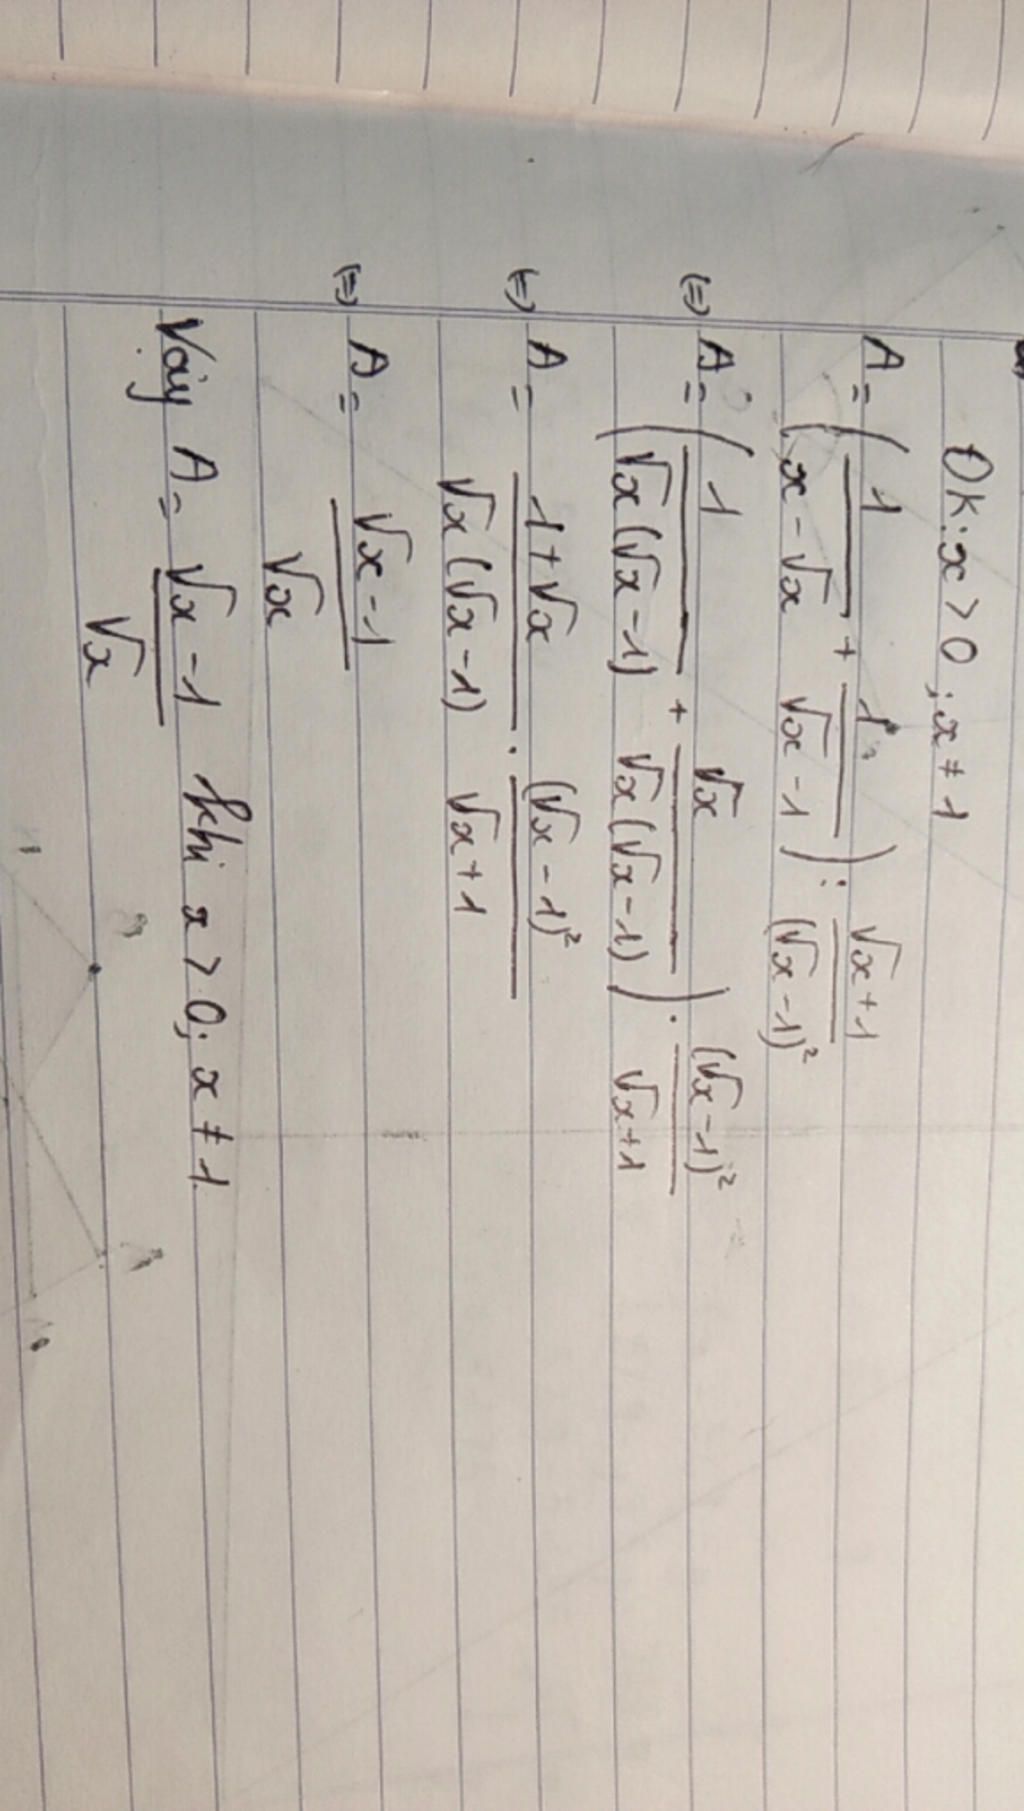 ĐK: x > 0; x ≠ 1
A = (1/(x - √x) + 1/(√x - 1)) : (√x + 1)/(√x - 1)²
(=) A = (1/(√x(√x - 1)) + √x/(√x(√x - 1))) . (√x - 1)²/(√x + 1)
(=) A = (1 + √x)/(√x(√x - 1)) . (√x - 1)²/(√x + 1)
(=) A = (√x - 1)/√x
Vậy A = (√x - 1)/√x khi x > 0; x ≠ 1.